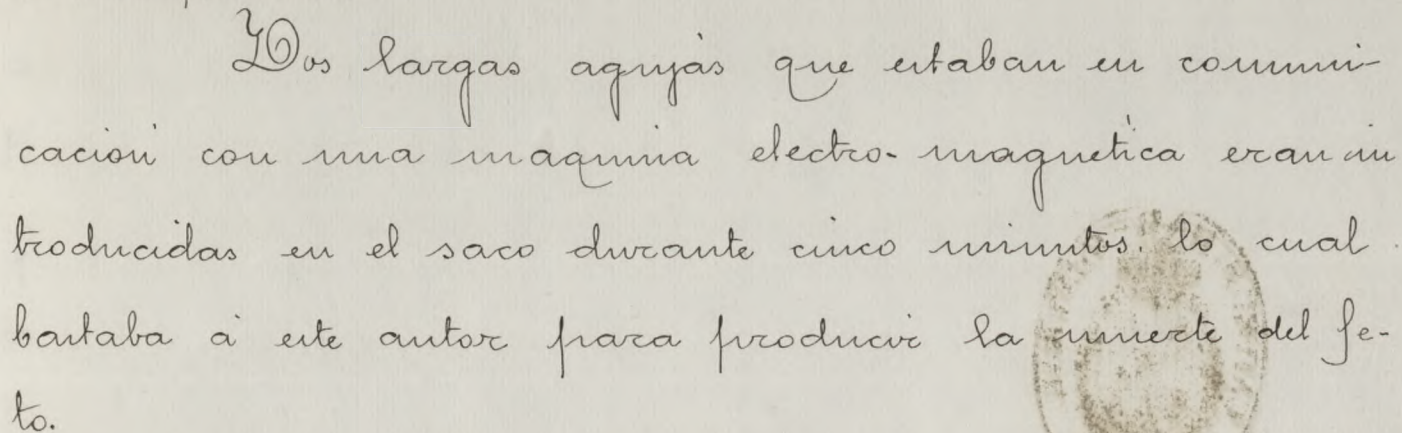 Dos largas agujas que estaban en comuni-
cación con una maquina electro-magnética eran in
troducidas en el saco durante cinco minutos. lo cual
bastaba á este autor para producir la muerte del fe-
to.